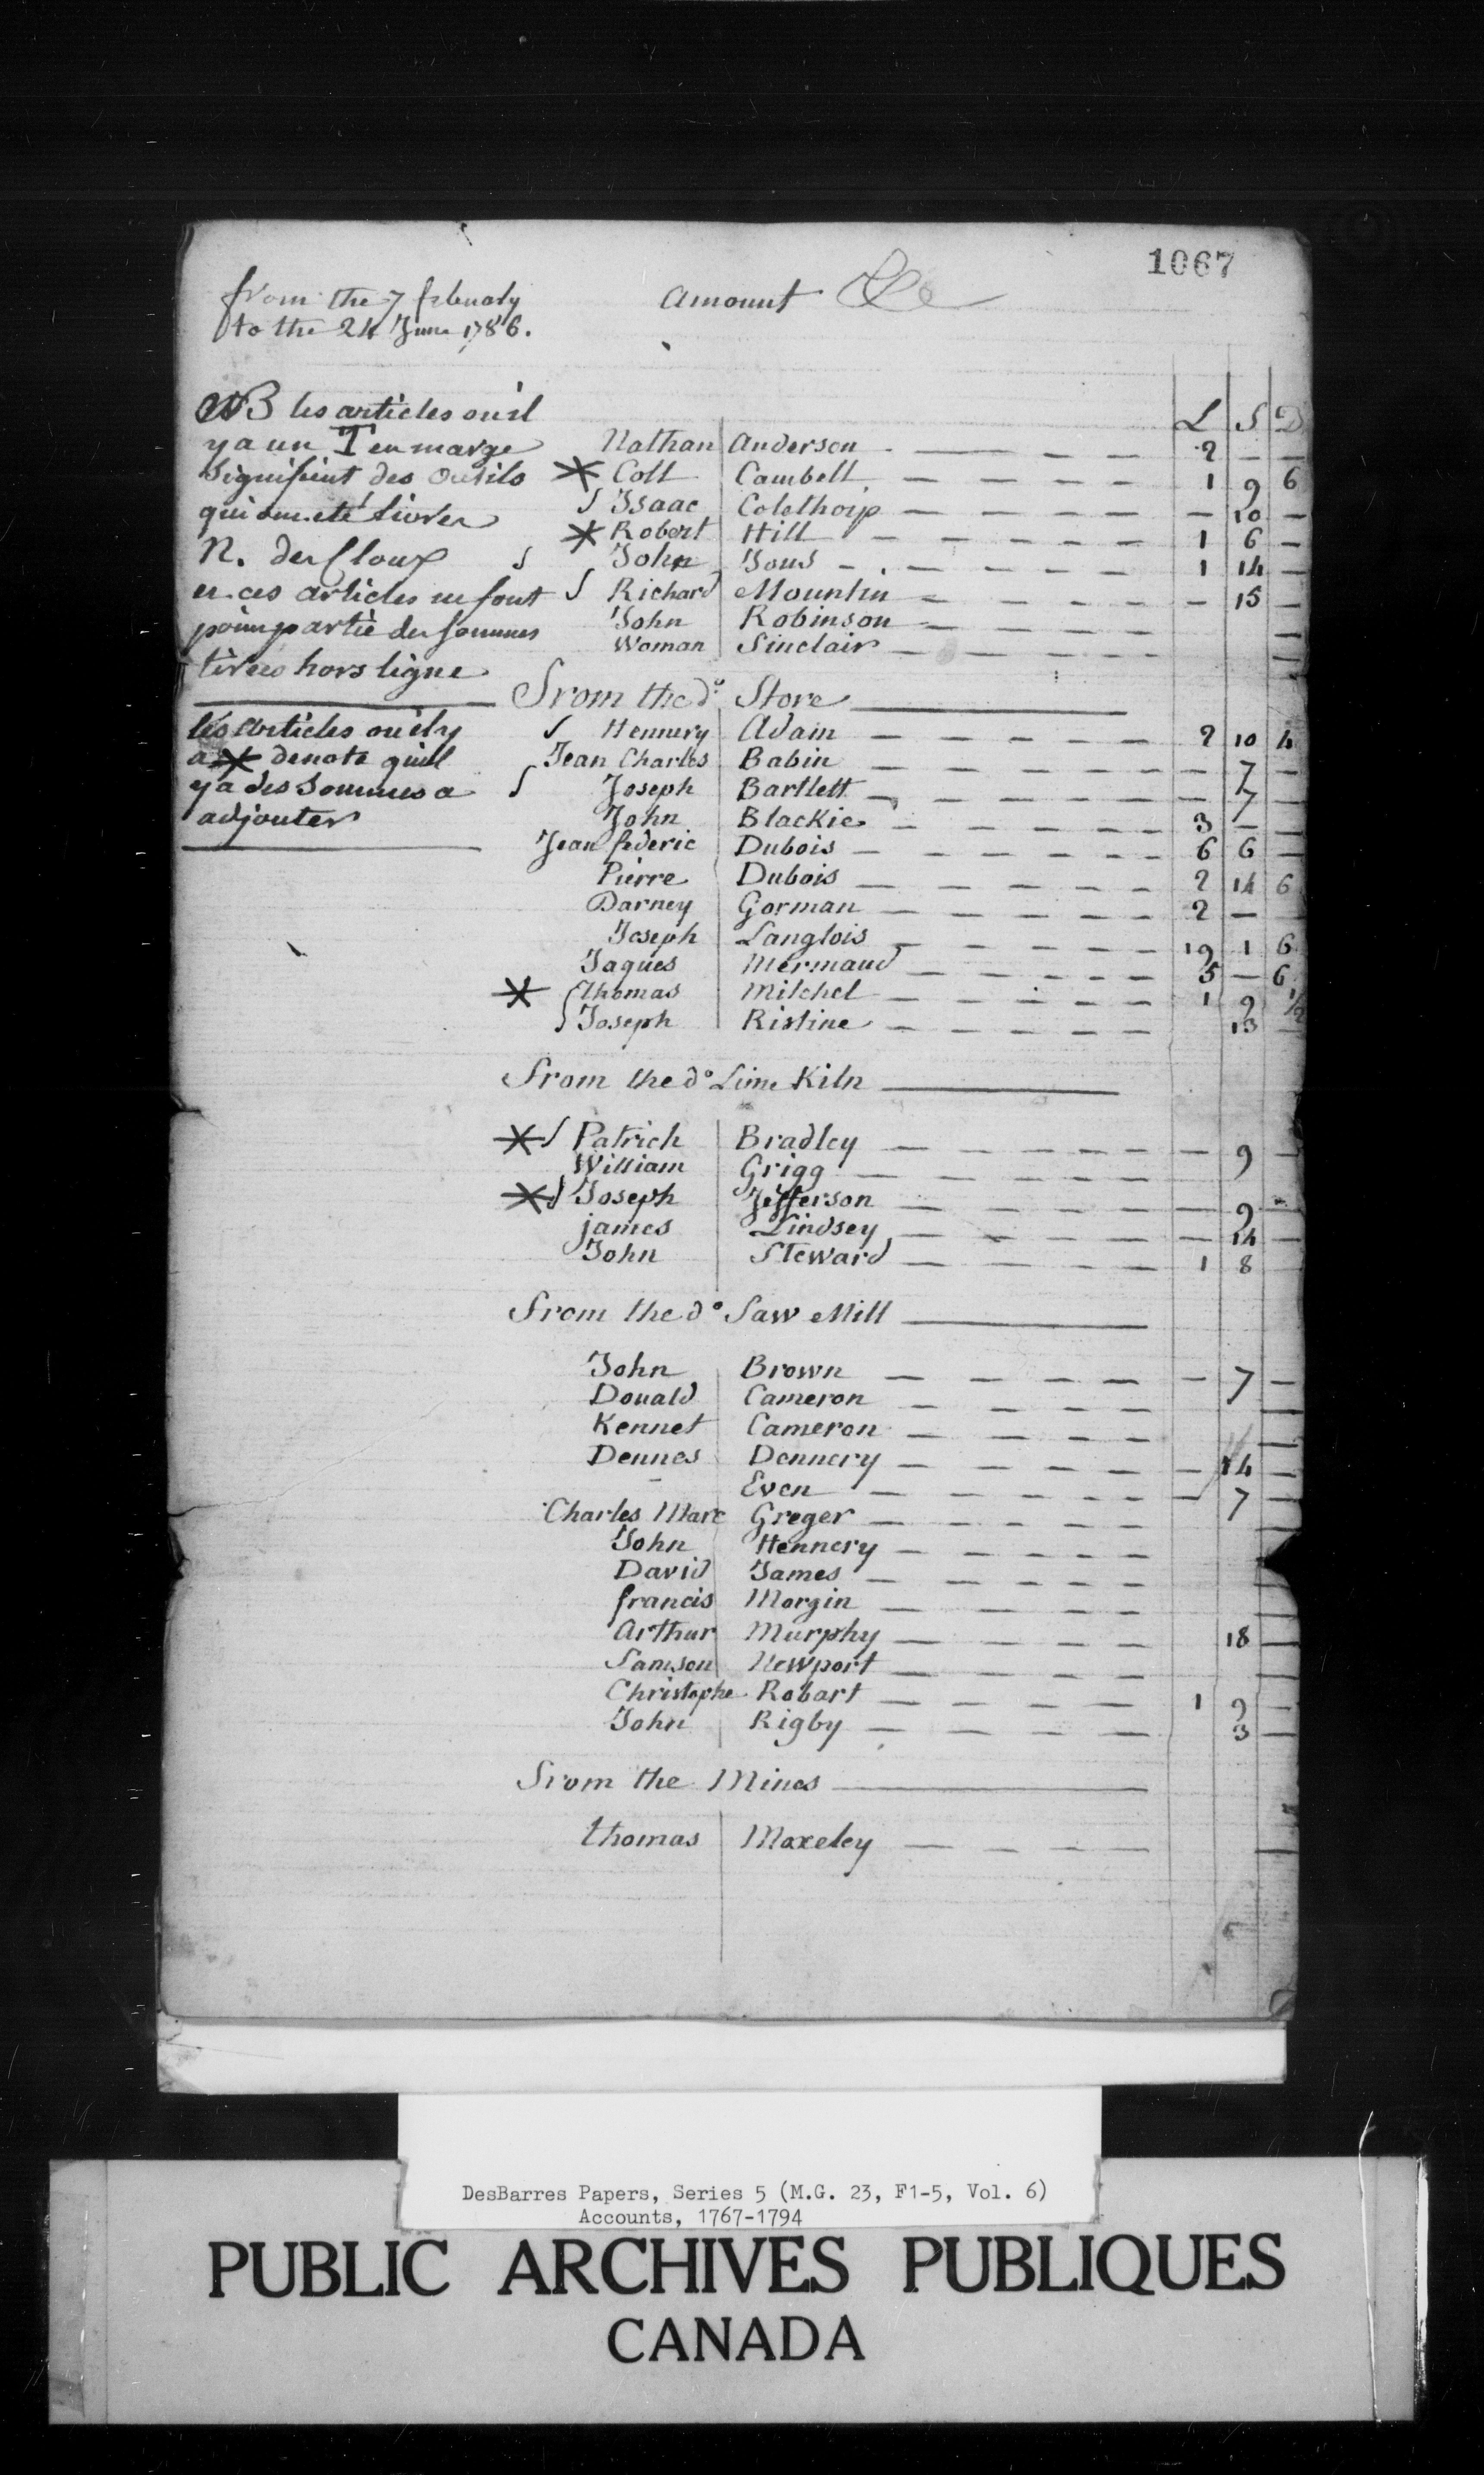 1067
from the 7 february
to the 24 June 1786.
amount
NB les articles ou il
y a un T en marge
signifient des outils
qui ont eté livrer
N. des Cloux
et ces articles ne font
point partie des sommes
tirées hors ligne
les articles ou il y
a * denote qu'il
y a des sommes a
adjouter
L S D
Nathan Anderson 2 — —
* Colt Cambell 1 9 6
Isaac Colethorp — 10 —
* Robert Hill 1 6 —
John Jons 1 14 —
Richard Mountin — 15 —
John Robinson —
Woman Sinclair —
From the do Store
Hennery Adam 2 10 4
Jean Charles Babin — 7 —
Joseph Bartlett — 7 —
John Blackie 3 — —
Jean federic Dubois 6 6 —
Pierre Dubois 2 14 6
Darney Gorman 2 — —
Joseph Langlois 19 1 6
Jaques Mermaud 5 — 6
* thomas Mitchel 1 9 1/2
Joseph Ristine 13 —
From the do Lime Kiln
* Patrich Bradley — 9 —
William Grigg
* Joseph Jefferson — 9 —
james Lindsey — 14 —
John Steward 1 8 —
From the do Saw Mill
John Brown — 7 —
Donald Cameron —
Kennet Cameron —
Dennes Dennery — 14 —
Even — 7 —
Charles Marc Greger —
John Hennery —
David James —
francis Morgin —
Arthur Murphy 18 —
Samson Newport —
Christophe Robart 1 9 —
John Rigby 3 —
From the Mines
thomas Moxeley —
DesBarres Papers, Series 5 (M.G. 23, F1-5, Vol. 6)
Accounts, 1767-1794
PUBLIC ARCHIVES PUBLIQUES
CANADA